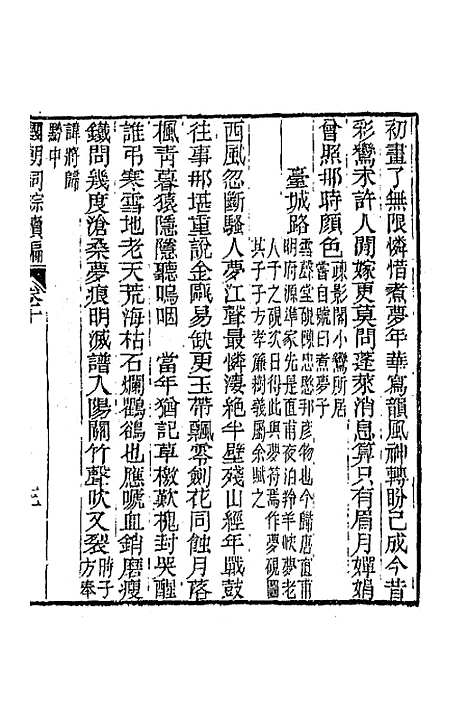 初畫了無限憐惜煮夢年華寫韻風神轉盼已成今昔
彩鸞未許人間嫁更莫問蓬萊消息算只有眉月嬋娟
曾照那時顏色疎影閣小鸞所居
嘗自號曰煮夢子
臺城路
雪麝堂硯陳忠愍邦彥物也今歸唐直甫
明府源準家先是直甫夜泊羚羊峽夢老
人予之硯次日得此與夢符焉作夢硯圖
其子子方孝廉樹義屬余賦之
西風忽斷騷人夢江聲最憐淒絕半壁殘山經年戰鼓
往事那堪重說金甌易缺更玉帶飄零劍花同蝕月落
楓青暮猿隱隱聽嗚咽　當年猶記草檄歎槐封哭醒
誰弔寒雪地老天荒海枯石爛鸜鵒也應嗁血銷磨瘦
鐵問幾度滄桑夢痕明滅譜入陽關竹聲吹又裂時子
方奉
諱將歸
黔中
國朝詞綜續編　卷十